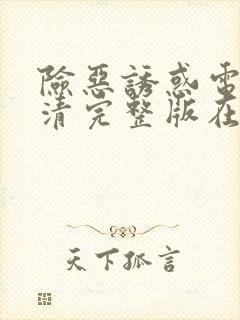 險惡誘惑電
清完整版在
天下孤言